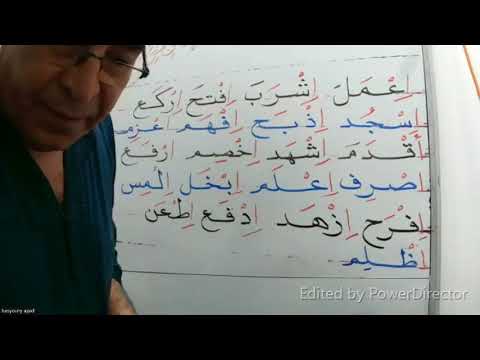 اِعْمَلَ اِشْرَبَ اِفْتَحَ اِرْكَعَ
اِسْجُد اِذْبَح اِفْهَم
أَقْدَمَ اِشْهَد اِخْصِم اِرْفَع
اِصْرِف اِعْلَم اِبْخَل اِلْمِس
اِفْرَح اِزْهَد اِدْفَع اِطْعَن
اِظْلِم
Edited by PowerDirector